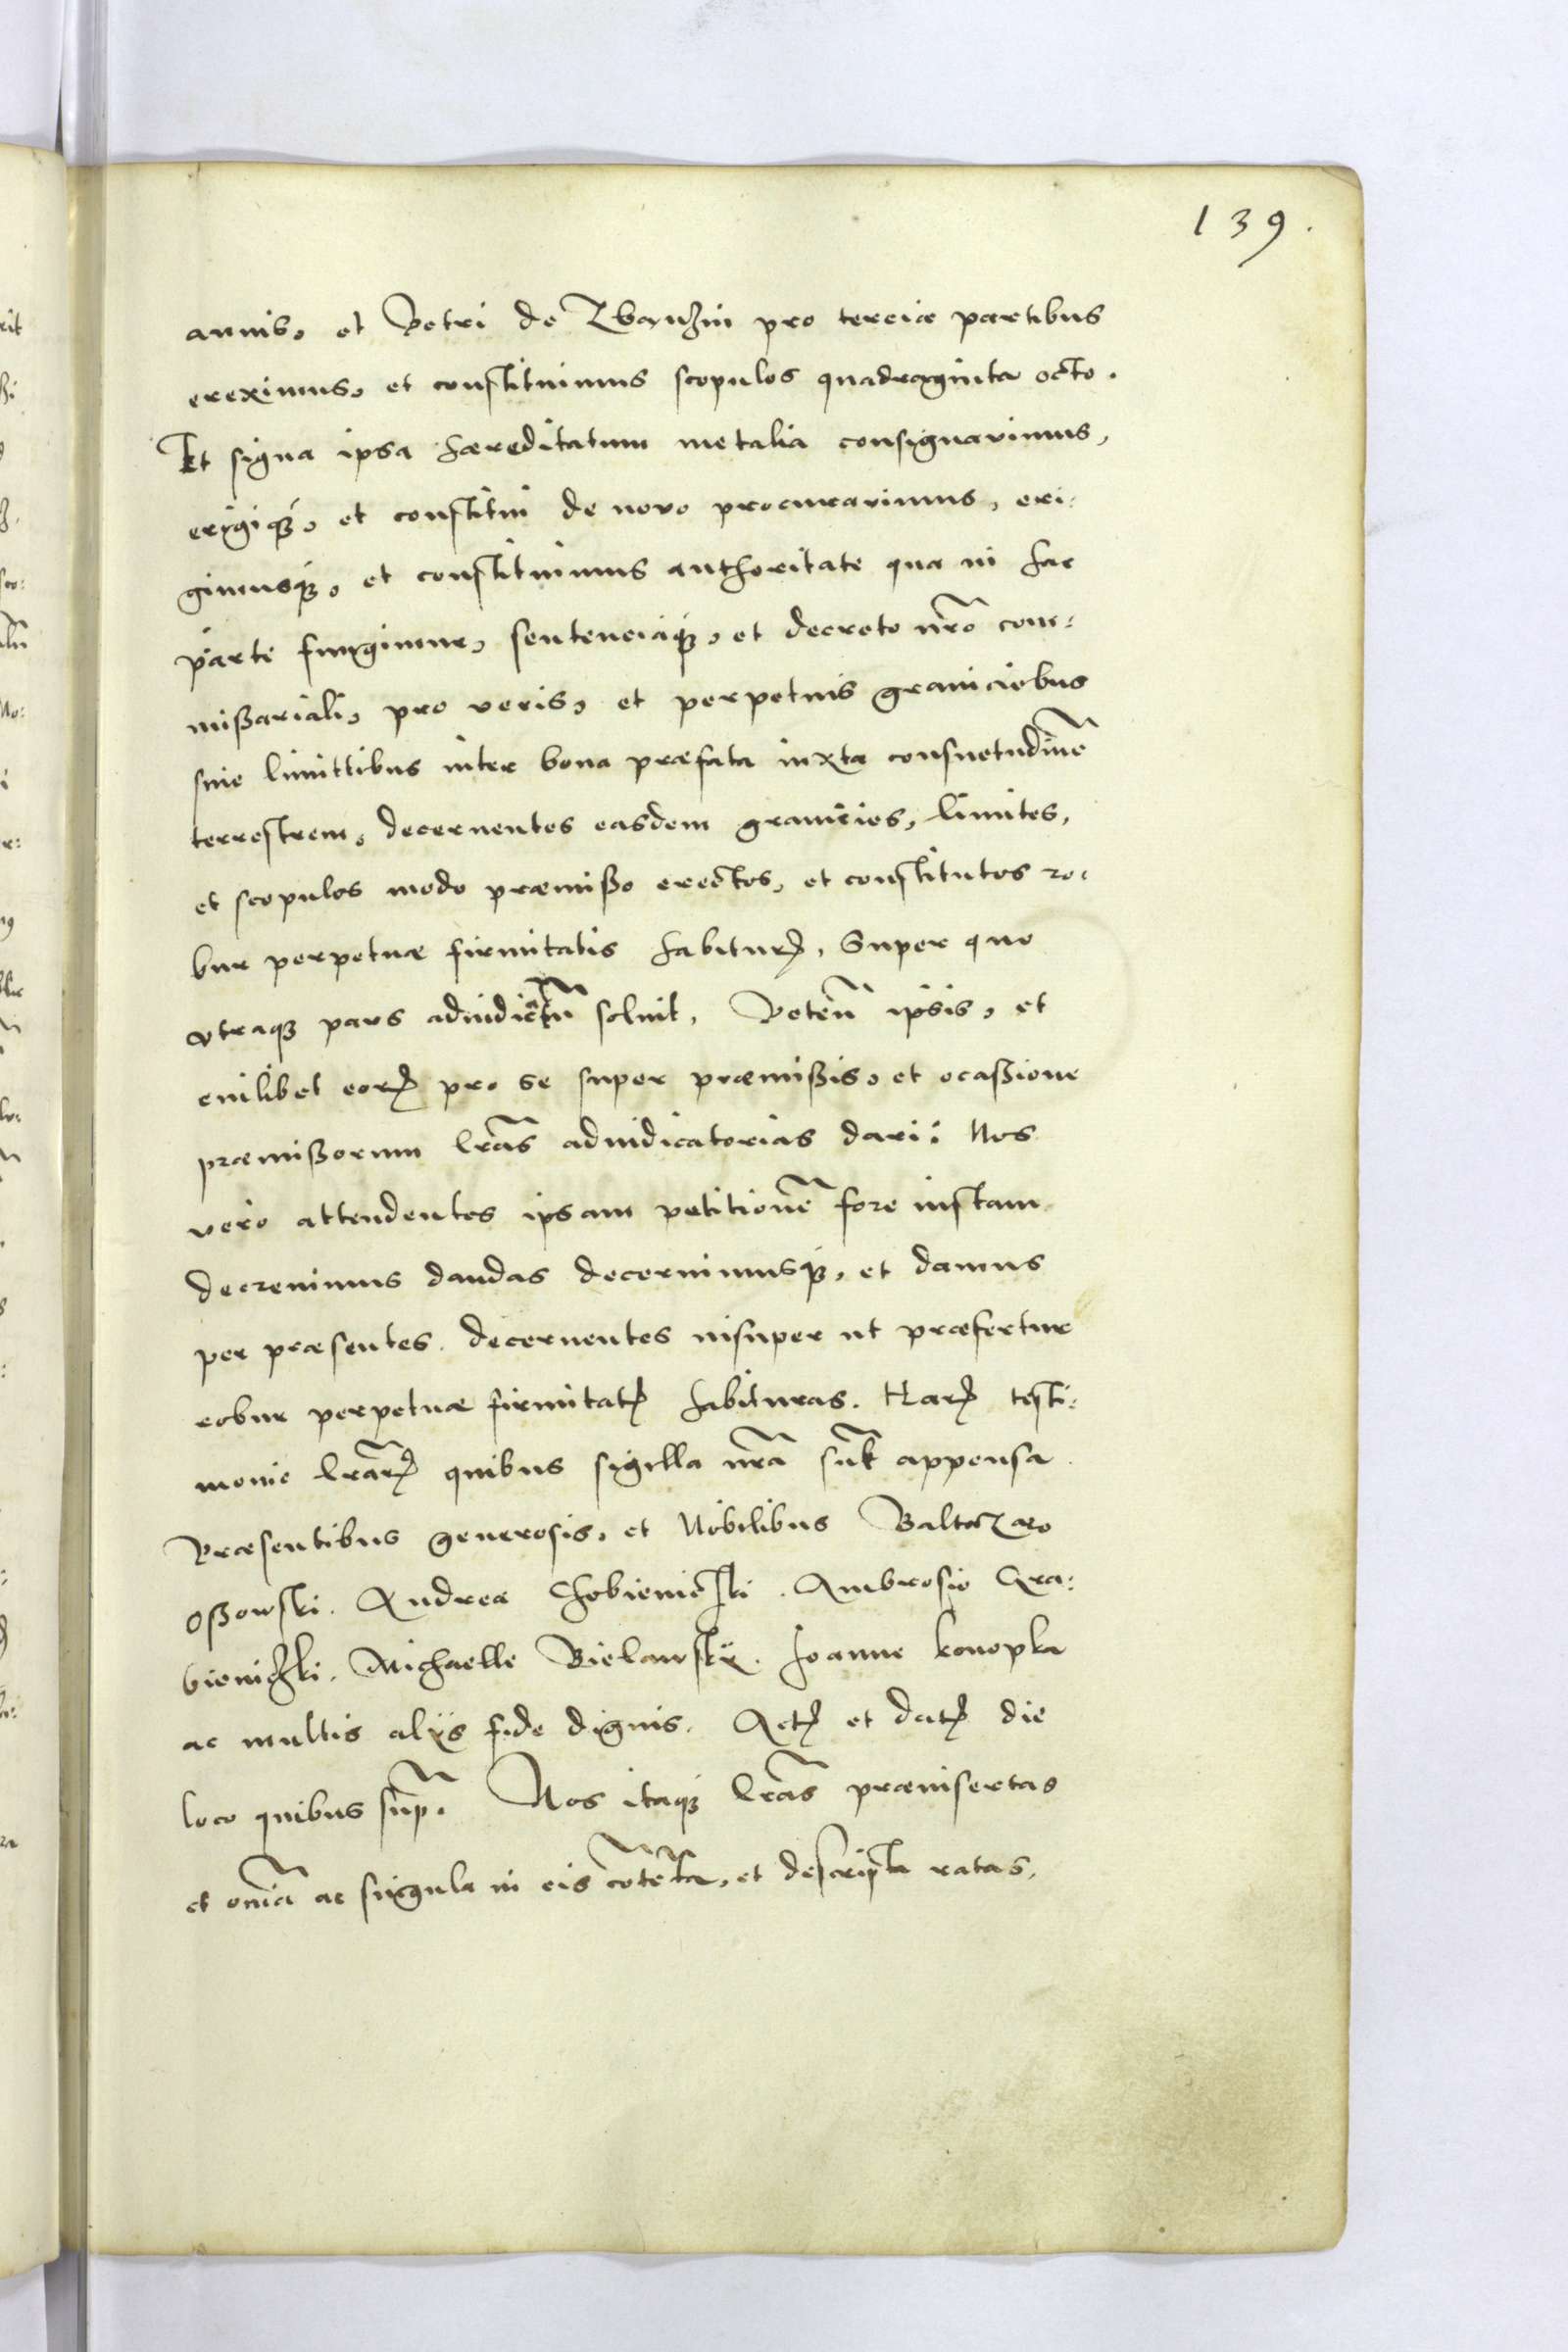 139.
annis, et Petri de Zbanzin pro tercia partibus
ereximus, et constituimus scopulos quadraginta octo.
Et signa ipsa hæreditatum metalia consignavimus,
erigiq́;, et constitui de novo procuravimus, eri:
gimusq́;, et constituimus authoritate qua in hac
parte fungimur, sentenciaq́;, et decreto nr̃o com:
mißariali, pro veris, et perpetuis graniciebus
siue limittibus inter bona præfata iuxta consuetudinẽ
terrestrem, decernentes easdem granicies, limites,
et scopulos modo præmißo erectos, et constitutos ro:
bur perpetuæ firmitatis habiturꝝ, Super quo
vtraq; pars adiudictũ soluit, Peteñ ipsis, et
cuilibet eorꝝ pro se super præmißis, et ocaßione
præmißorum lr̃as adiudicatorias dari: Nos
vero attendentes ipsam petitionẽ fore iustam
decreuimus dandas decernimusq́;, et damus
per præsentes. decernentes insuper ut præfertur
robur perpetuæ firmitatꝭ habituras. Harꝝ testi:
monio lr̃arꝝ quibus sigilla nr̃a sũt appensa.
Præsentibus generosis, et Nobilibus Baltazaro
Oßowski. Andrea Chobienieski. Ambrosio Gra:
bieniczki. Michaelle Bielawskÿ. Joanne Konopka
ac multis alÿs fide dignis. Actꝭ et datꝭ die
loco quibus sup̃. Nos itaq́; lr̃as præinsertas
et om̃ia ac singula in eis cõtẽta, et descripta ratas,